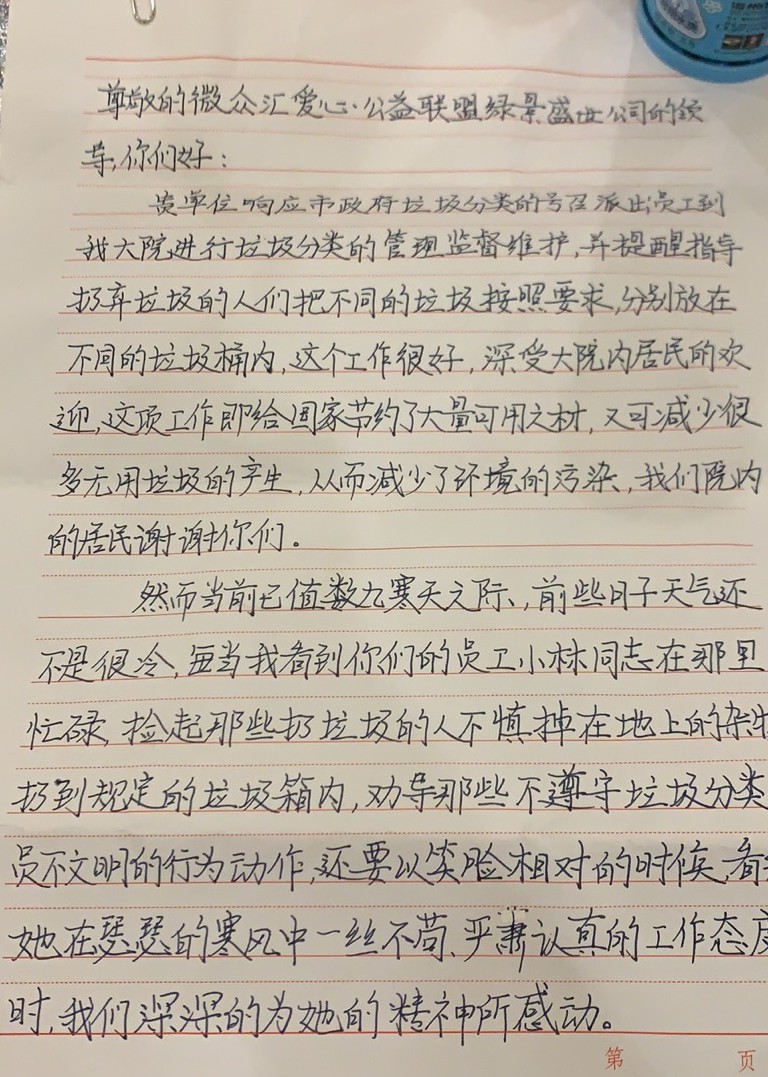 尊敬的微众汇爱心公益联盟绿景盛世公司的领
导,你们好:
贵单位响应市政府垃圾分类的号召派出员工到
我大院进行垃圾分类的管理监督维护,并提醒指导
扔弃垃圾的人们把不同的垃圾按照要求,分别放在
不同的垃圾桶内,这个工作很好,深受大院内居民的欢
迎,这项工作即给国家节约了大量可用之材,又可减少很
多无用垃圾的产生,从而减少了环境的污染,我们院内
的居民谢谢你们。
然而当前已值数九寒天之际、,前些日子天气还
不是很冷,每当我看到你们的员工小林同志在那里
忙碌,捡起那些扔垃圾的人不慎掉在地上的杂物
扔到规定的垃圾箱内,劝导那些不遵守垃圾分类
员不文明的行为动作,还要以笑脸相对的时候,看
她在瑟瑟的寒风中一丝不苟、严肃认真的工作态度
时,我们深深的为她的精神所感动。
第 页